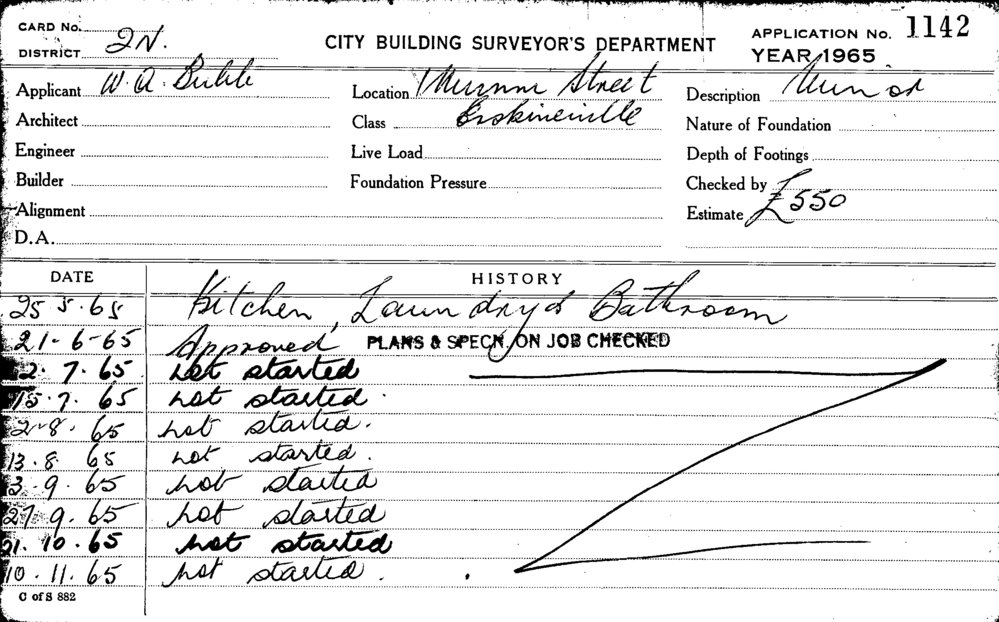 CARD No.
DISTRICT 2N.
CITY BUILDING SURVEYOR'S DEPARTMENT
APPLICATION No. 1142
YEAR 1965
Applicant W. A.
Location Street
Description
Architect
Class Erskineville
Nature of Foundation
Engineer
Live Load
Depth of Footings
Builder
Foundation Pressure
Checked by
Alignment
Estimate £550
D.A.
DATE HISTORY
25 5.65 Kitchen, Laundry & Bathroom
21-6-65 Approved PLANS & SPECN, ON JOB CHECKED
2.7.65 not started
15.7.65 not started.
2-8.65 not started.
13.8 65 not started.
3.9.65 not started
27.9.65 not started
21.10.65 not started
10.11.65 not started.
C of S 882